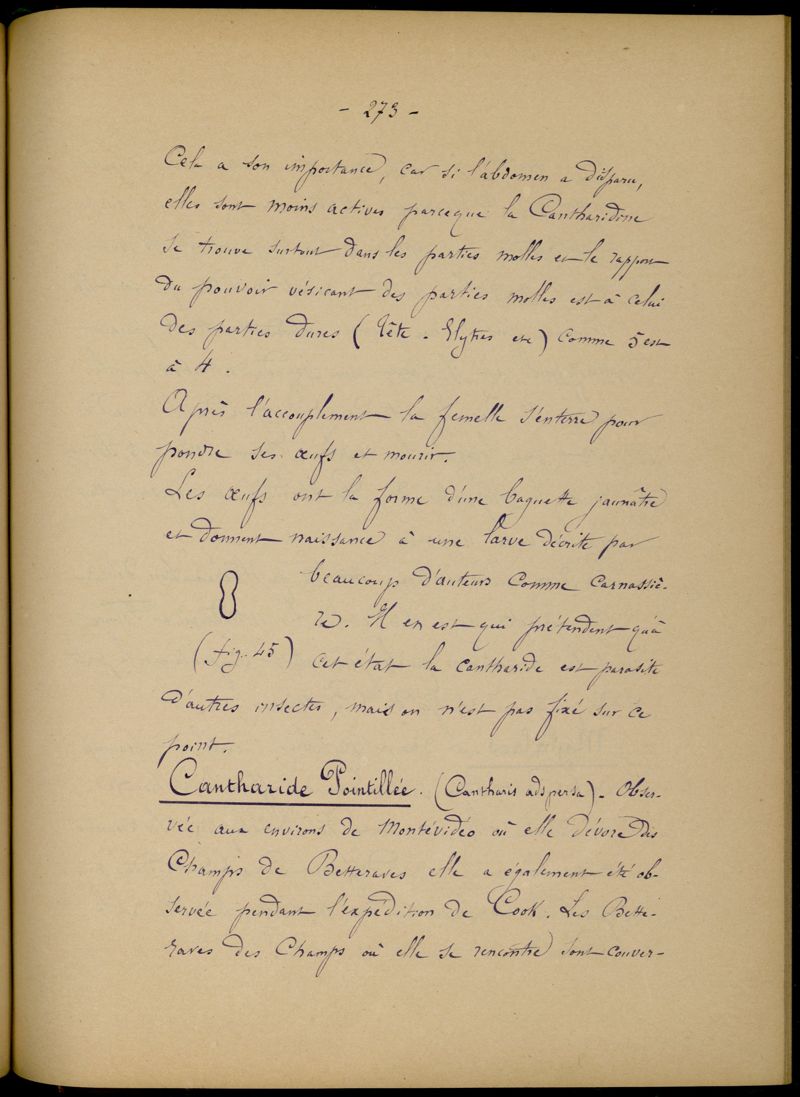 - 273 -
Cela a son importance, car si l'abdomen a disparu,
elles sont moins actives parceque la Cantharidine
se trouve surtout dans les parties molles et le rapport
du pouvoir vésicant des parties molles est à celui
des parties dures (Tête - Elytres etc) comme 5 est
à 4.
Après l'accouplement la femelle s'enterre pour
pondre ses œufs et mourir.
Les œufs ont la forme d'une baguette jaunâtre
et donnent naissance à une larve décrite par
beaucoup d'auteurs comme carnassiè-
re. Il en est qui prétendent qu'à
(fig. 45) cet état la cantharide est parasite
d'autres insectes, mais on n'est pas fixé sur ce
point.
Cantharide Pointillée. (Cantharis adspersa) - Obser-
vée aux environs de Montévidéo où elle dévore des
Champs de Betteraves elle a également été ob-
servée pendant l'expédition de Cook. Les Bette-
raves des Champs où elle se rencontre sont couver-